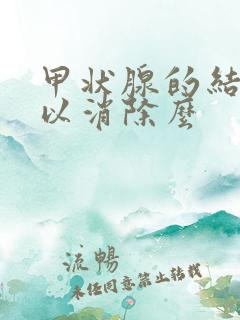 甲状腺的結
以消除麼
流暢
未任同意禁止转载